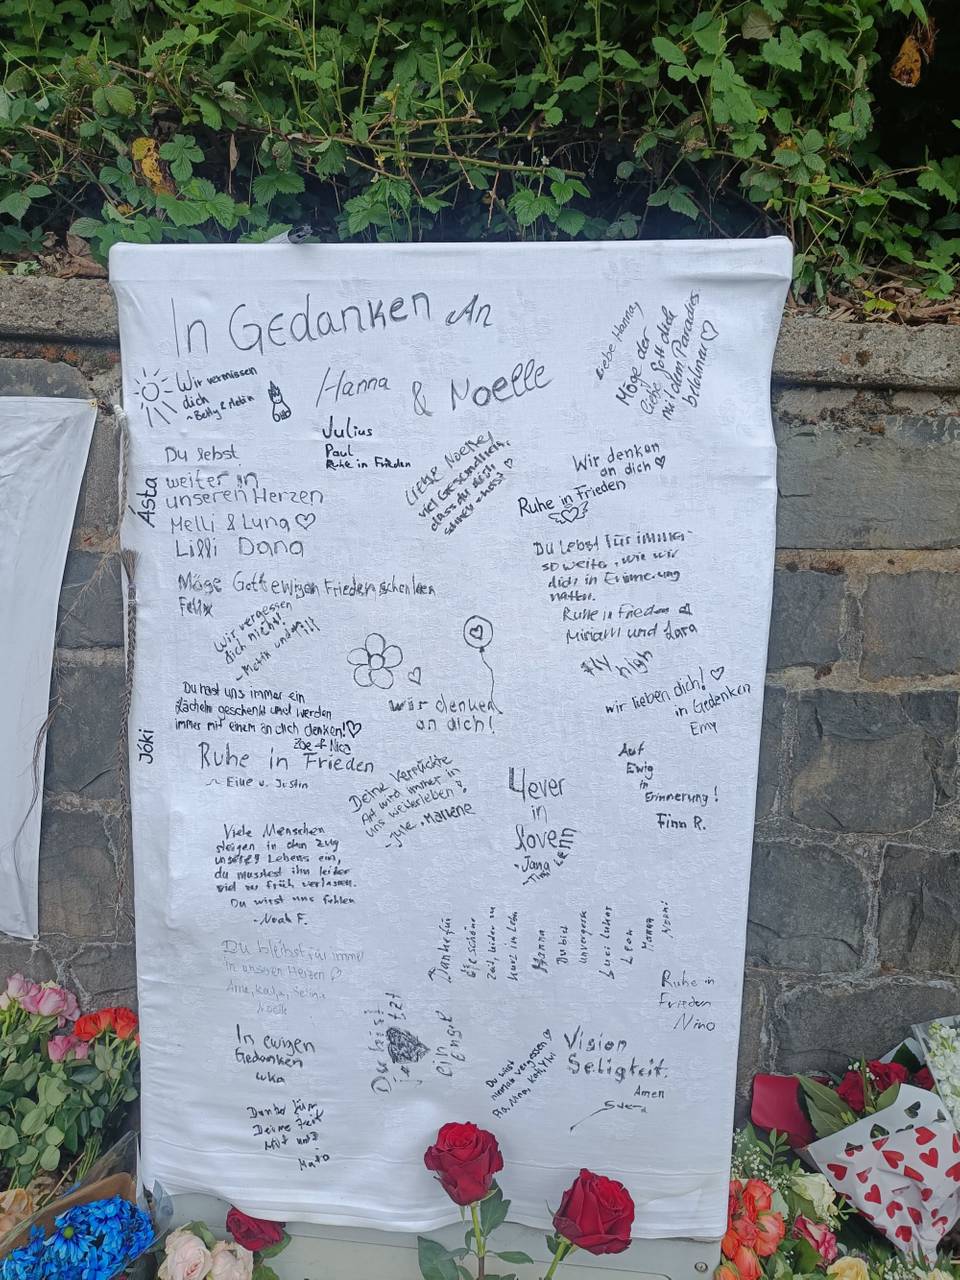 In Gedanken An
Hanna & Noelle
Wir vermissen
dich
Liebe Hanna,
Möge der
liebe Gott dich
mit dem Paradies
belohnen ♡
Julius
Paul
Ruhe in Frieden
Du lebst
weiter in
unseren Herzen
Melli & Luna ♡
Lilli Dana
Ásta
Liebe Noelle,
viel Gesundheit,
dass du dich
schnell
Wir denken
an dich ♡
Ruhe in Frieden
Möge Gott ewigen Frieden schenken
Felix
Du lebst für immer
so weiter, wie wir
dich in Erinnerung
hatten.
Ruhe in Frieden
Miriam und Lara
Wir vergessen
dich nicht!
- Metin und
fly high
Du hast uns immer ein
lächeln geschenkt und werden
immer mit einem an dich denken! ♡
Zoe + Nica
wir denken
an dich!
wir lieben dich! ♡
in Gedenken
Emy
Jóki
Ruhe in Frieden
~ Eliie u. Justin
Deine Verrückte
Art wird immer in
uns weiterleben!
- Jule, Marlene
4ever
in
love
- Jana
- Tim
Lenn
Auf
Ewig
in
Erinnerung!
Finn R.
Viele Menschen
steigen in den Zug
unseres Lebens ein,
du musstest ihn leider
viel zu früh verlassen.
Du wirst uns fehlen
- Noah F.
Du bleibst für immer
in unseren Herzen ♡
Katja, Selina
Noelle
Danke für
die schöne
Zeit, leider zu
kurz im Leben
Hanna
Du bist
unvergessen
Luci Lukas
Leon
Hanna
Ruhe in
Frieden
Nino
Du bist
jetzt
ein
Engel
In ewigen
Gedanken
Luka
Du wirst
niemals vergessen
Pia, Nina, Kati, Ylvi
Vision
Seligkeit.
Amen
Danke für
Deine Zeit
Mit uns
Mato